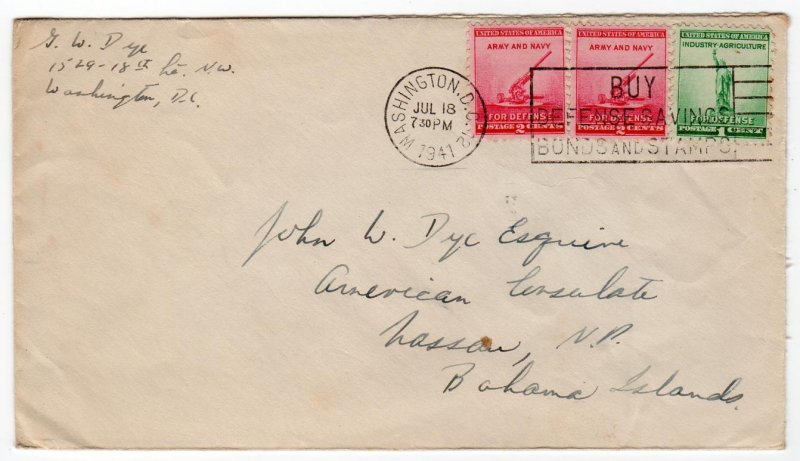 G. W. Dye
1529-18th St. N.W.
Washington, D.C.
WASHINGTON, D.C.
JUL 18
7 30 PM
1941
UNITED STATES OF AMERICA
ARMY AND NAVY
FOR DEFENSE
POSTAGE 2 CENTS
UNITED STATES OF AMERICA
ARMY AND NAVY
FOR DEFENSE
POSTAGE 2 CENTS
UNITED STATES OF AMERICA
INDUSTRY-AGRICULTURE
FOR DEFENSE
POSTAGE 1 CENT
BUY
DEFENSE SAVINGS
BONDS AND STAMPS
John W. Dye Esquire
American Consulate
Nassau, N.P.
Bahama Islands.